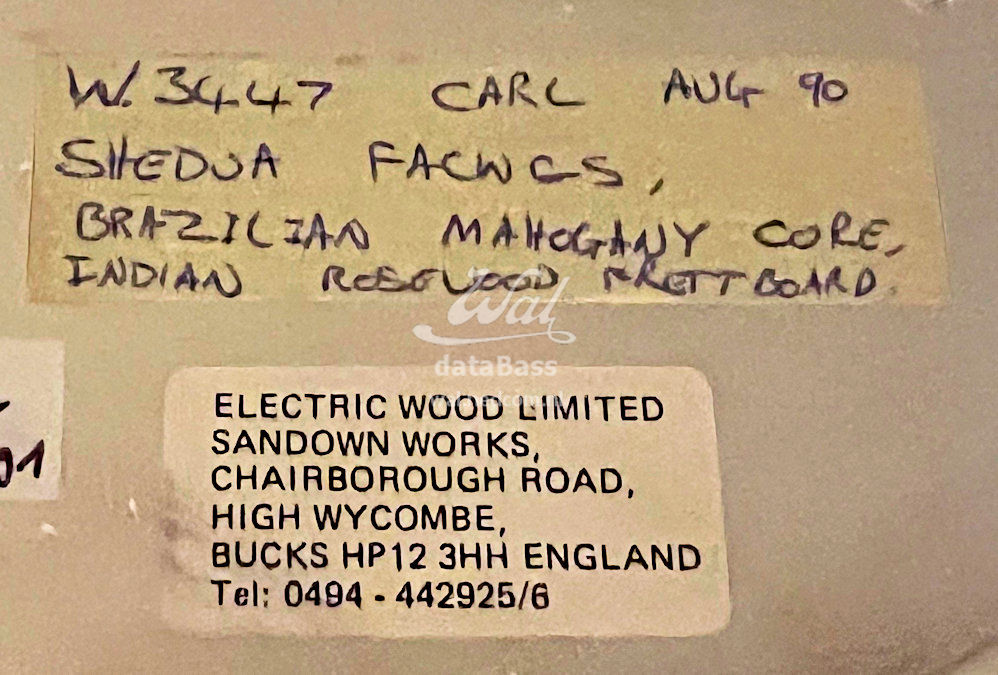 W. 3447 CARL AUG 90
SHEDUA FACINGS,
BRAZILIAN MAHOGANY CORE,
INDIAN ROSEWOOD FRETTBOARD.
Wal
dataBass
ELECTRIC WOOD LIMITED
SANDOWN WORKS,
CHAIRBOROUGH ROAD,
HIGH WYCOMBE,
BUCKS HP12 3HH ENGLAND
Tel: 0494 - 442925/6
01